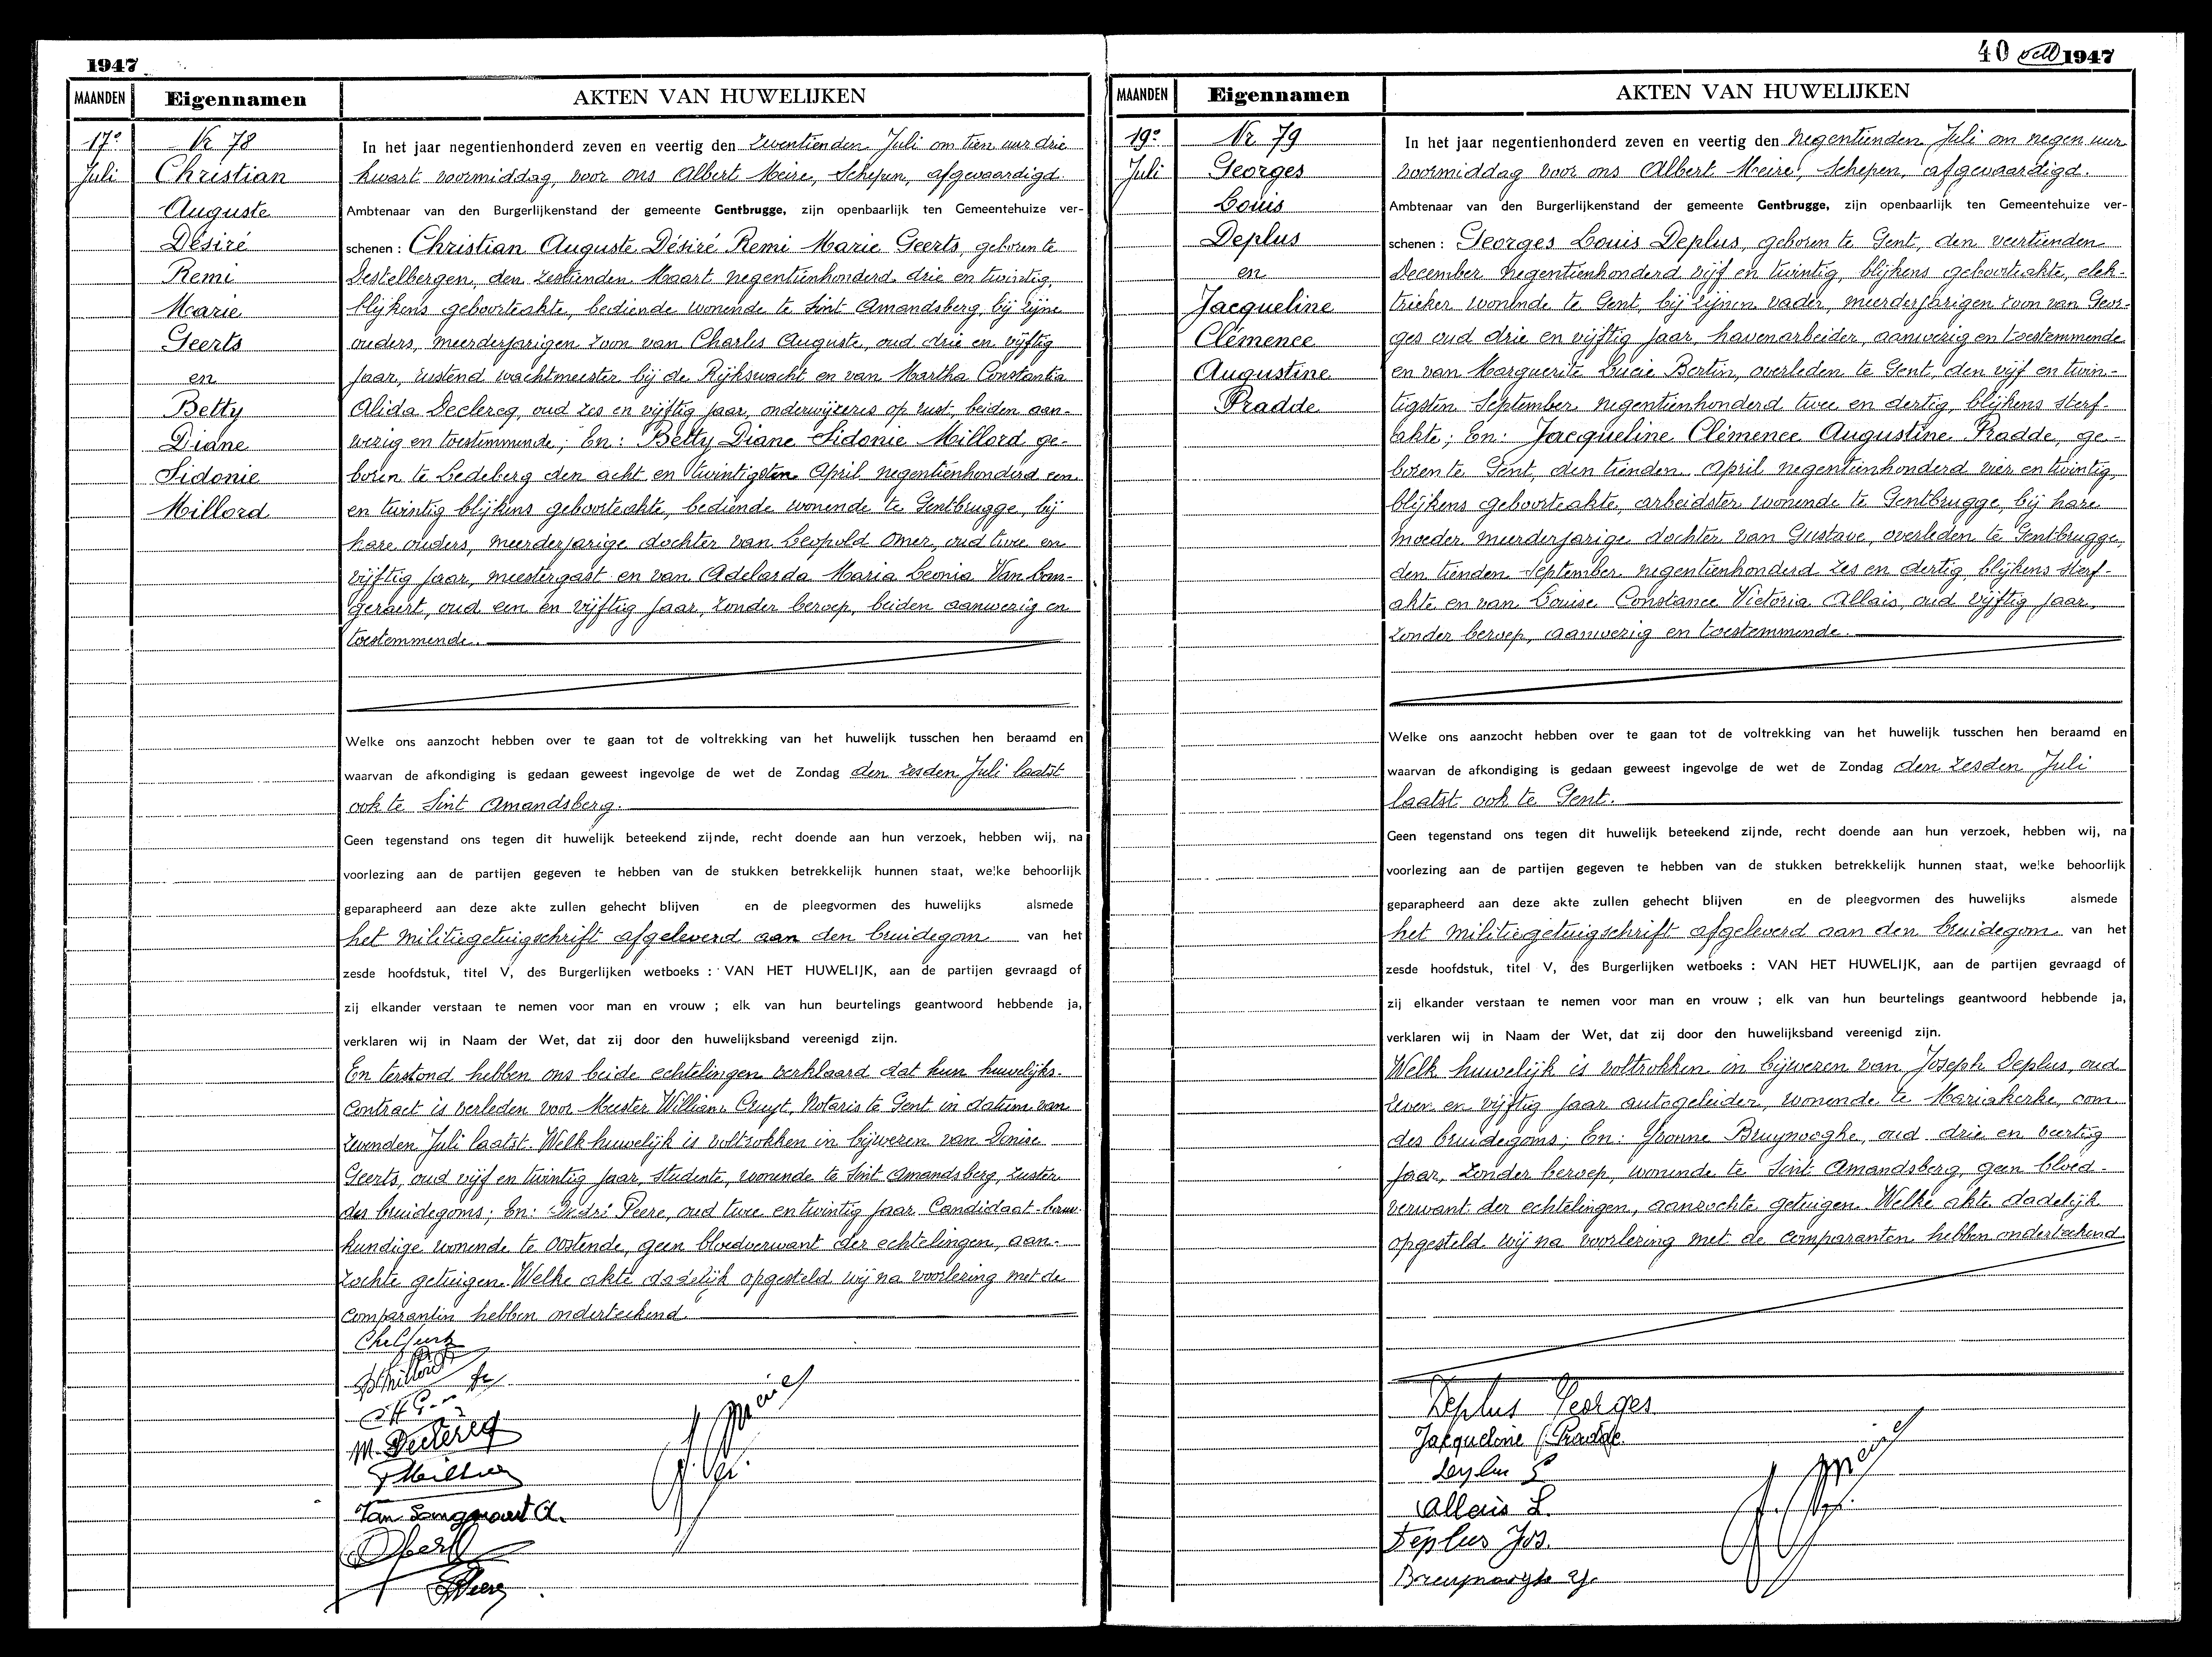 1947
MAANDEN Eigennamen AKTEN VAN HUWELIJKEN
17e Nr 78
Juli
Christian
Auguste
Désiré
Remi
Marie
Geerts
en
Betty
Diane
Sidonie
Millord
In het jaar negentienhonderd zeven en veertig den zeventienden Juli om tien uur drie
kwart voormiddag, voor ons Albert Meire, Schepen, afgevaardigd
Ambtenaar van den Burgerlijkenstand der gemeente Gentbrugge, zijn openbaarlijk ten Gemeentehuize ver-
schenen : Christian Auguste Désiré Remi Marie Geerts, geboren te
Destelbergen, den zestienden Maart negentienhonderd drie en twintig,
blijkens geboorteakte, bediende wonende te Sint Amandsberg, bij zijne
ouders, meerderjarigen zoon van Charles Auguste, oud drie en vijftig
jaar, rustend wachtmeester bij de Rijkswacht en van Martha Constantia
Alida Declercq, oud zes en vijftig jaar, onderwijzeres op rust, beiden aan-
wezig en toestemmende; En: Betty Diane Sidonie Millord ge-
boren te Ledeberg den acht en twintigsten April negentienhonderd een
en twintig blijkens geboorteakte, bediende wonende te Gentbrugge, bij
hare ouders, meerderjarige dochter van Leopold Omer, oud twee en
vijftig jaar, meestergast en van Adelarda Maria Leonia Van Lan-
geraert, oud een en vijftig jaar, zonder beroep, beiden aanwezig en
toestemmende.
Welke ons aanzocht hebben over te gaan tot de voltrekking van het huwelijk tusschen hen beraamd en
waarvan de afkondiging is gedaan geweest ingevolge de wet de Zondag den zesden Juli laatst
ook te Sint Amandsberg.
Geen tegenstand ons tegen dit huwelijk beteekend zijnde, recht doende aan hun verzoek, hebben wij, na
voorlezing aan de partijen gegeven te hebben van de stukken betrekkelijk hunnen staat, welke behoorlijk
geparapheerd aan deze akte zullen gehecht blijven en de pleegvormen des huwelijks alsmede
het militiegetuigschrift afgeleverd aan den bruidegom van het
zesde hoofdstuk, titel V, des Burgerlijken wetboeks : VAN HET HUWELIJK, aan de partijen gevraagd of
zij elkander verstaan te nemen voor man en vrouw ; elk van hun beurtelings geantwoord hebbende ja,
verklaren wij in Naam der Wet, dat zij door den huwelijksband vereenigd zijn.
En terstond hebben ons beide echtelingen verklaard dat hun huwelijks-
contract is verleden voor Meester William Cruyt, Notaris te Gent in datum van
zevenden Juli laatst. Welk huwelijk is voltrokken in bijwezen van Denise
Geerts, oud vijf en twintig jaar, studente, wonende te Sint Amandsberg, zuster
des bruidegoms; En: Peere, oud twee en twintig jaar Candidaat-
kundige wonende te Oostende, geen bloedverwant der echtelingen, aan-
zochte getuigen. Welke akte dadelijk opgesteld wij na voorlezing met de
comparanten hebben onderteekend.
M. Declercq
Van Langeraert A.
Peere
40 1947
MAANDEN Eigennamen AKTEN VAN HUWELIJKEN
19e Nr 79
Juli
Georges
Louis
Deplus
en
Jacqueline
Clémence
Augustine
Pradde
In het jaar negentienhonderd zeven en veertig den negentienden Juli om negen uur
voormiddag voor ons Albert Meire, Schepen, afgevaardigd.
Ambtenaar van den Burgerlijkenstand der gemeente Gentbrugge, zijn openbaarlijk ten Gemeentehuize ver-
schenen : Georges Louis Deplus, geboren te Gent, den veertienden
December negentienhonderd vijf en twintig, blijkens geboorteakte, elek-
trieker wonende te Gent, bij zijnen vader, meerderjarigen zoon van Geor-
ges oud drie en vijftig jaar, havenarbeider, aanwezig en toestemmende
en van Marguerite Lucie Bertin, overleden te Gent, den vijf en twin-
tigsten September negentienhonderd twee en dertig, blijkens sterf-
akte; En: Jacqueline Clémence Augustine Pradde, ge-
boren te Gent, den tienden April negentienhonderd vier en twintig,
blijkens geboorteakte, arbeidster wonende te Gentbrugge, bij hare
moeder meerderjarige dochter van Gustave, overleden te Gentbrugge,
den tienden September negentienhonderd zes en dertig, blijkens sterf-
akte en van Louise Constance Victoria Allais, oud vijftig jaar,
zonder beroep, aanwezig en toestemmende.
Welke ons aanzocht hebben over te gaan tot de voltrekking van het huwelijk tusschen hen beraamd en
waarvan de afkondiging is gedaan geweest ingevolge de wet de Zondag den zesden Juli
laatst ook te Gent.
Geen tegenstand ons tegen dit huwelijk beteekend zijnde, recht doende aan hun verzoek, hebben wij, na
voorlezing aan de partijen gegeven te hebben van de stukken betrekkelijk hunnen staat, welke behoorlijk
geparapheerd aan deze akte zullen gehecht blijven en de pleegvormen des huwelijks alsmede
het militiegetuigschrift afgeleverd aan den bruidegom van het
zesde hoofdstuk, titel V, des Burgerlijken wetboeks : VAN HET HUWELIJK, aan de partijen gevraagd of
zij elkander verstaan te nemen voor man en vrouw ; elk van hun beurtelings geantwoord hebbende ja,
verklaren wij in Naam der Wet, dat zij door den huwelijksband vereenigd zijn.
Welk huwelijk is voltrokken in bijwezen van Joseph Deplus, oud
zeven en vijftig jaar autogeleider, wonende te Mariakerke, oom
des bruidegoms; En: Yvonne Bruynooghe, oud drie en veertig
jaar, zonder beroep, wonende te Sint Amandsberg, geen bloed-
verwant der echtelingen, aanzochte getuigen. Welke akte dadelijk
opgesteld wij na voorlezing met de comparanten hebben onderteekend.
Deplus Georges
Jacqueline Pradde.
Deplus G
Allais L.
Deplus Jos.
Bruynooghe Y.